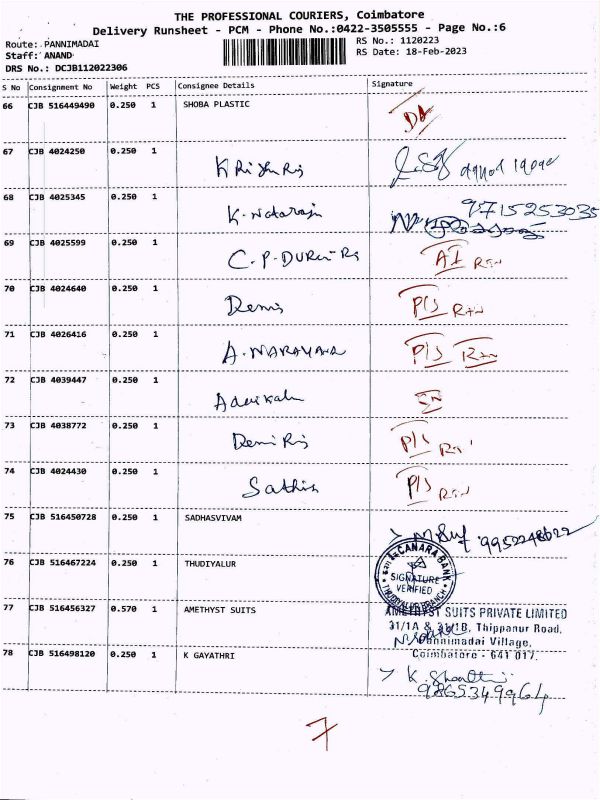 THE PROFESSIONAL COURIERS, Coimbatore
Delivery Runsheet - PCM - Phone No.:0422-3505555 - Page No.:6
Route: PANNIMADAI
Staff: ANAND
DRS No.: DCJB112022306
RS No.: 1120223
RS Date: 18-Feb-2023
S No Consignment No Weight PCS Consignee Details Signature
66 CJB 516449490 0.250 1 SHOBA PLASTIC
67 CJB 4024250 0.250 1
68 CJB 4025345 0.250 1 K. Nataraju 9715253035
69 CJB 4025599 0.250 1
70 CJB 4024640 0.250 1 P/S
71 CJB 4026416 0.250 1 A. NARAYANA P/S
72 CJB 4039447 0.250 1
73 CJB 4038772 0.250 1 P/S
74 CJB 4024430 0.250 1 Sathis P/S
75 CJB 516450728 0.250 1 SADHASVIVAM
76 CJB 516467224 0.250 1 THUDIYALUR
CANARA BANK
SIGNATURE
VERIFIED
THUDIYALUR BRANCH
77 CJB 516456327 0.570 1 AMETHYST SUITS
AMETHYST SUITS PRIVATE LIMITED
31/1A & 31/1B, Thippanur Road,
Pannimadai Village,
Coimbatore - 641 017.
78 CJB 516498120 0.250 1 K GAYATHRI
9865349964
7